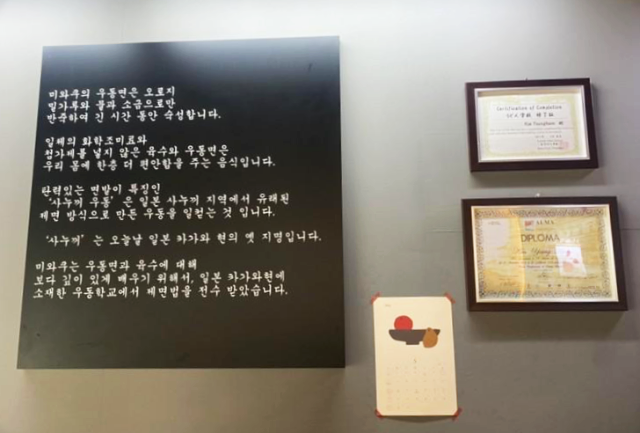 미와쿠의 우동면은 오로지
밀가루와 물과 소금으로만
반죽하여 긴 시간 동안 숙성합니다.
일체의 화학조미료와
첨가제를 넣지 않은 육수와 우동면은
우리 몸에 한층 더 편안함을 주는 음식입니다.
탄력있는 면발이 특징인
'사누끼 우동' 은 일본 사누끼 지역에서 유래된
제면 방식으로 만든 우동을 일컫는 것 입니다.
'사누끼' 는 오늘날 일본 카가와 현의 옛 지명입니다.
미와쿠는 우동면과 육수에 대해
보다 깊이 있게 배우기 위해서, 일본 카가와현에
소재한 우동학교에서 제면법을 전수 받았습니다.
Certification of Completion
DIPLOMA